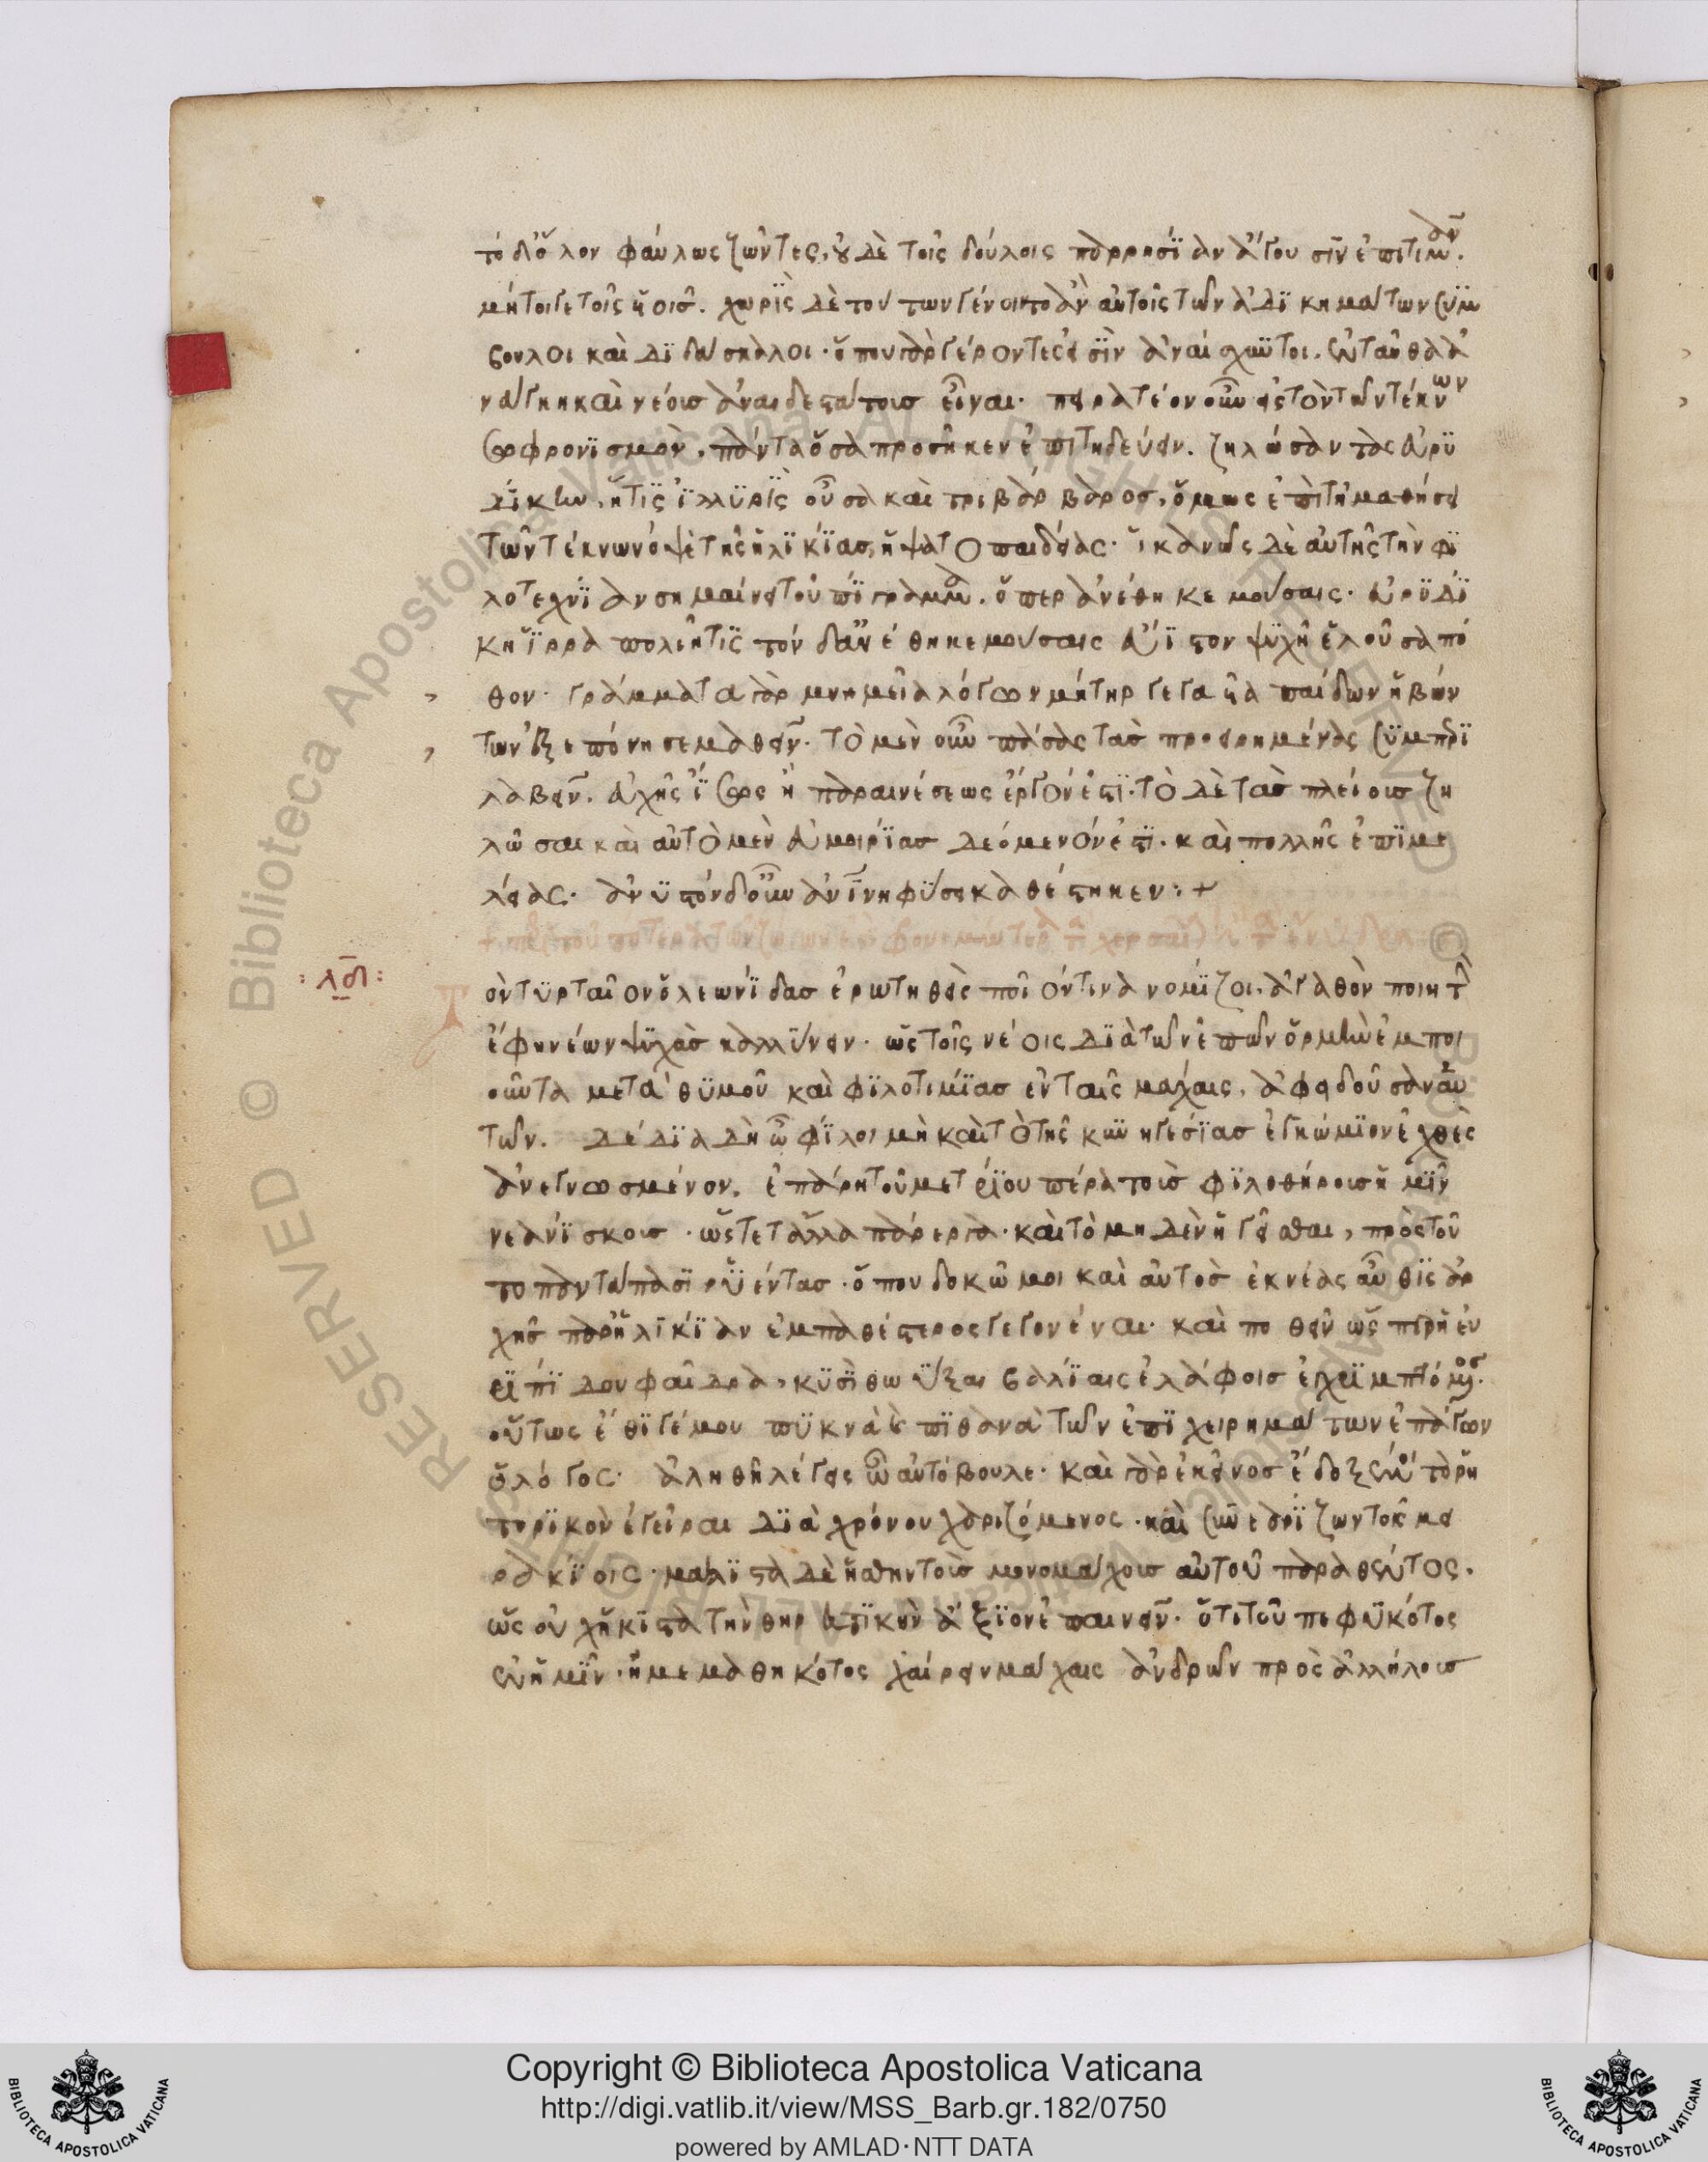 τὸ δ' ὅλον φαύλως ζῶντες, οὐδὲ τοῖς δούλοις παρρησίαν ἄγουσιν ἐπιτιμᾶν.
μήτοιγε τοῖς υἱοῖς. χωρὶς δὲ τούτων γένοιντο ἂν αὐτοῖς τῶν ἀδικημάτων σύμ
βουλοι καὶ διδάσκαλοι. ὅπου γὰρ γέροντές εἰσιν ἀναίσχυντοι, ἐνταῦθα ἀ
νάγκη καὶ νέοις ἀναιδεστάτοις εἶναι. πειρατέον οὖν εἰς τὸν τῶν τέκνων
σωφρονισμὸν, πάντα ὅσα προσῆκεν ἐπιτηδεύειν. ζηλώσαντας Εὐρυ
δίκην, ἥτις Ἰλλυρὶς οὖσα καὶ τριβάρβαρος, ὅμως ἐπὶ τῇ μαθήσει
τῶν τέκνων ὀψὲ τῆς ἡλικίας, ἥψατο παιδείας. ἱκανῶς δὲ αὐτῆς τὴν φι
λοτεχνίαν σημαίνει τοὐπίγραμμα. ὅπερ ἀνέθηκε μούσαις. Εὐρυδί
κη Ἱρραπολιῆτις τόνδ' ἀνέθηκε μούσαις εὔιστον ψυχῇ ἑλοῦσα πό
θον. γράμματα γὰρ μνημεῖα λόγων μήτηρ γεγαυῖα παίδων ἡβών
των ἐξεπόνησε μαθεῖν. τὸ μὲν οὖν πάσας τὰς προειρημένας συμπερι
λαβεῖν. εὐχῆς ἴσως ἢ παραινέσεως ἔργον ἐστί. τὸ δὲ τὰς πλείους ζη
λῶσαι καὶ αὐτὸ μὲν εὐμοιρίας δεόμενόν ἐστι. καὶ πολλῆς ἐπιμε
λείας. ἀνυστὸν δ' οὖν ἀνθρωπίνῃ φύσει καθέστηκεν :+
: λδ :
Τὸν Τυρταῖον ὁ Λεωνίδας ἐρωτηθεὶς ποῖόν τινα νομίζοι, ἀγαθὸν ποιητὴν
ἔφη νέων ψυχὰς καλλύνειν. ὡς τοῖς νέοις διὰ τῶν ἐπῶν ὁρμὴν ἐμποι
οῦντα μετὰ θυμοῦ καὶ φιλοτιμίας ἐν ταῖς μάχαις, ἀφειδοῦσαν αὑ
τῶν. δέδια δὴ ὦ φίλοι μὴ καὶ τὸ τῆς κυνηγεσίας ἐγκώμιον ἐχθὲς
ἀνεγνωσμένον, ἐπάρῃ τοῦ μετρίου πέρα τοὺς φιλοθήρους ἡμῖν
νεανίσκους. ὥστε τἄλλα πάρεργα. καὶ τὸ μηδὲν ἡγεῖσθαι, πρὸς τοῦ
το παντάπασι ῥυέντας. ὅπου δοκῶ μοι καὶ αὐτὸς ἐκ νέας αὖθις ἀρ
χῆς παρ' ἡλικίαν ἐμπαθέστερος γεγονέναι. καὶ ποθεῖν ὥσπερ ἡ Εὐ
ριπίδου Φαίδρα, κυσὶ θωΰξαι βαλίαις ἐλάφοις ἐγχριμπτόμενος.
οὕτως ἔθιγέ μου πυκνὰ καὶ πιθανὰ τῶν ἐπιχειρημάτων ἐπάγων
ὁ λόγος. ἀληθῆ λέγεις ὦ Αὐτόβουλε. καὶ γὰρ ἐκεῖνος ἔδοξέν μοι τὸ ῥη
τορικὸν ἐγεῖραι διὰ χρόνου χαριζόμενος. καὶ συνεαρίζων τοῖς μει
ρακίοις. μάλιστα δὲ ἥσθην τοὺς μονομάχους αὐτοῦ παραθέντος.
ὡς οὐχ ἥκιστα τὴν θηρευτικὴν ἄξιον ἐπαινεῖν. ὅτι τοῦ πεφυκότος
ἐν ἡμῖν. ἢ μεμαθηκότος χαίρειν μάχαις ἀνδρῶν πρὸς ἀλλήλους
RESERVED © Biblioteca Apostolica Vaticana
Copyright © Biblioteca Apostolica Vaticana
http://digi.vatlib.it/view/MSS_Barb.gr.182/0750
powered by AMLAD·NTT DATA
BIBLIOTECA APOSTOLICA VATICANA
BIBLIOTECA APOSTOLICA VATICANA